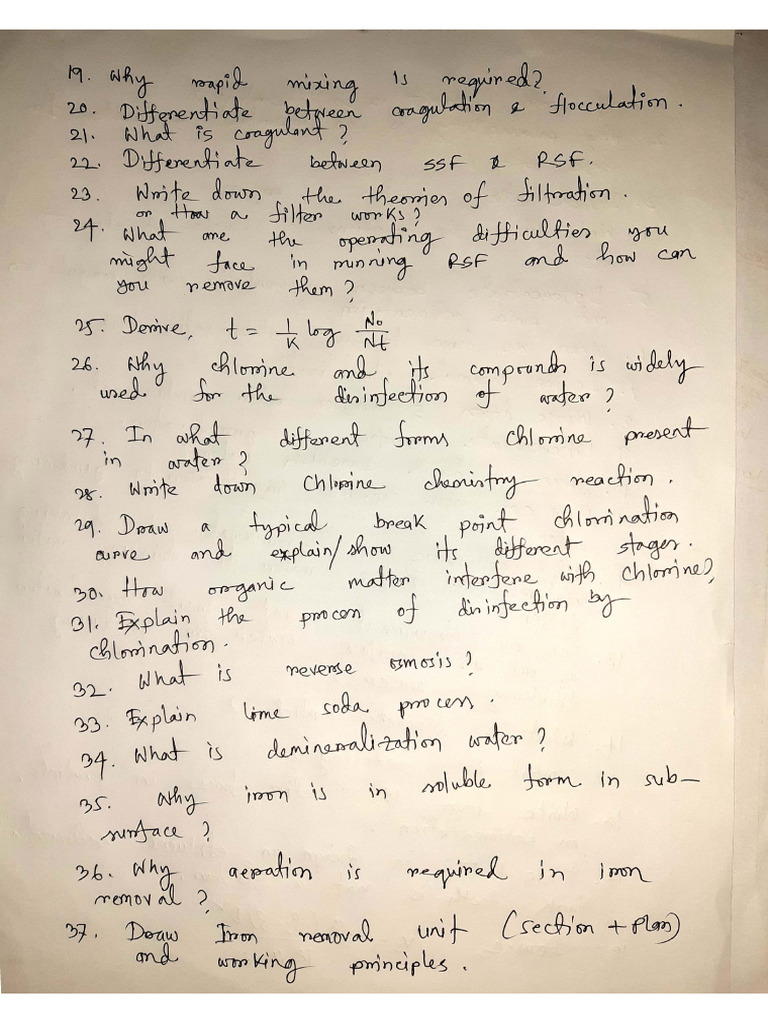 19. Why rapid mixing is required?
20. Differentiate between coagulation & flocculation.
21. What is coagulant?
22. Differentiate between SSF & RSF.
23. Write down the theories of filtration.
or How a filter works?
24. What are the operating difficulties you
might face in running RSF and how can
you remove them?
25. Derive, t = 1/K log No/Nt
26. Why chlorine and its compounds is widely
used for the disinfection of water?
27. In what different forms chlorine present
in water?
28. Write down Chlorine chemistry reaction.
29. Draw a typical break point chlorination
curve and explain/show its different stages.
30. How organic matter interfere with chlorine?
31. Explain the process of disinfection by
chlorination.
32. What is reverse osmosis?
33. Explain lime soda process.
34. What is demineralization water?
35. Why iron is in soluble form in sub-
surface?
36. Why aeration is required in iron
removal?
37. Draw Iron removal unit (section + plan)
and working principles.